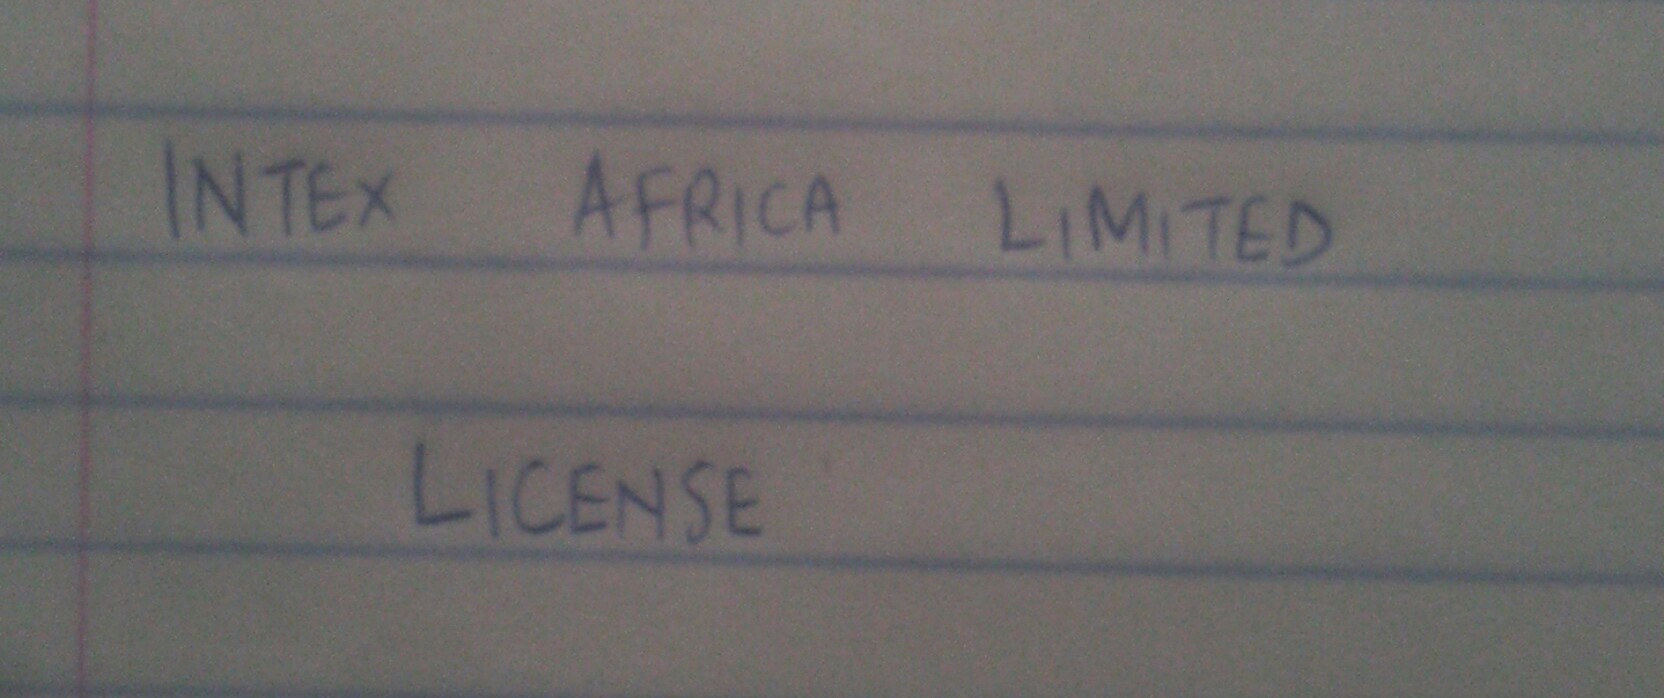 INTEX AFRICA LIMITED
LICENSE